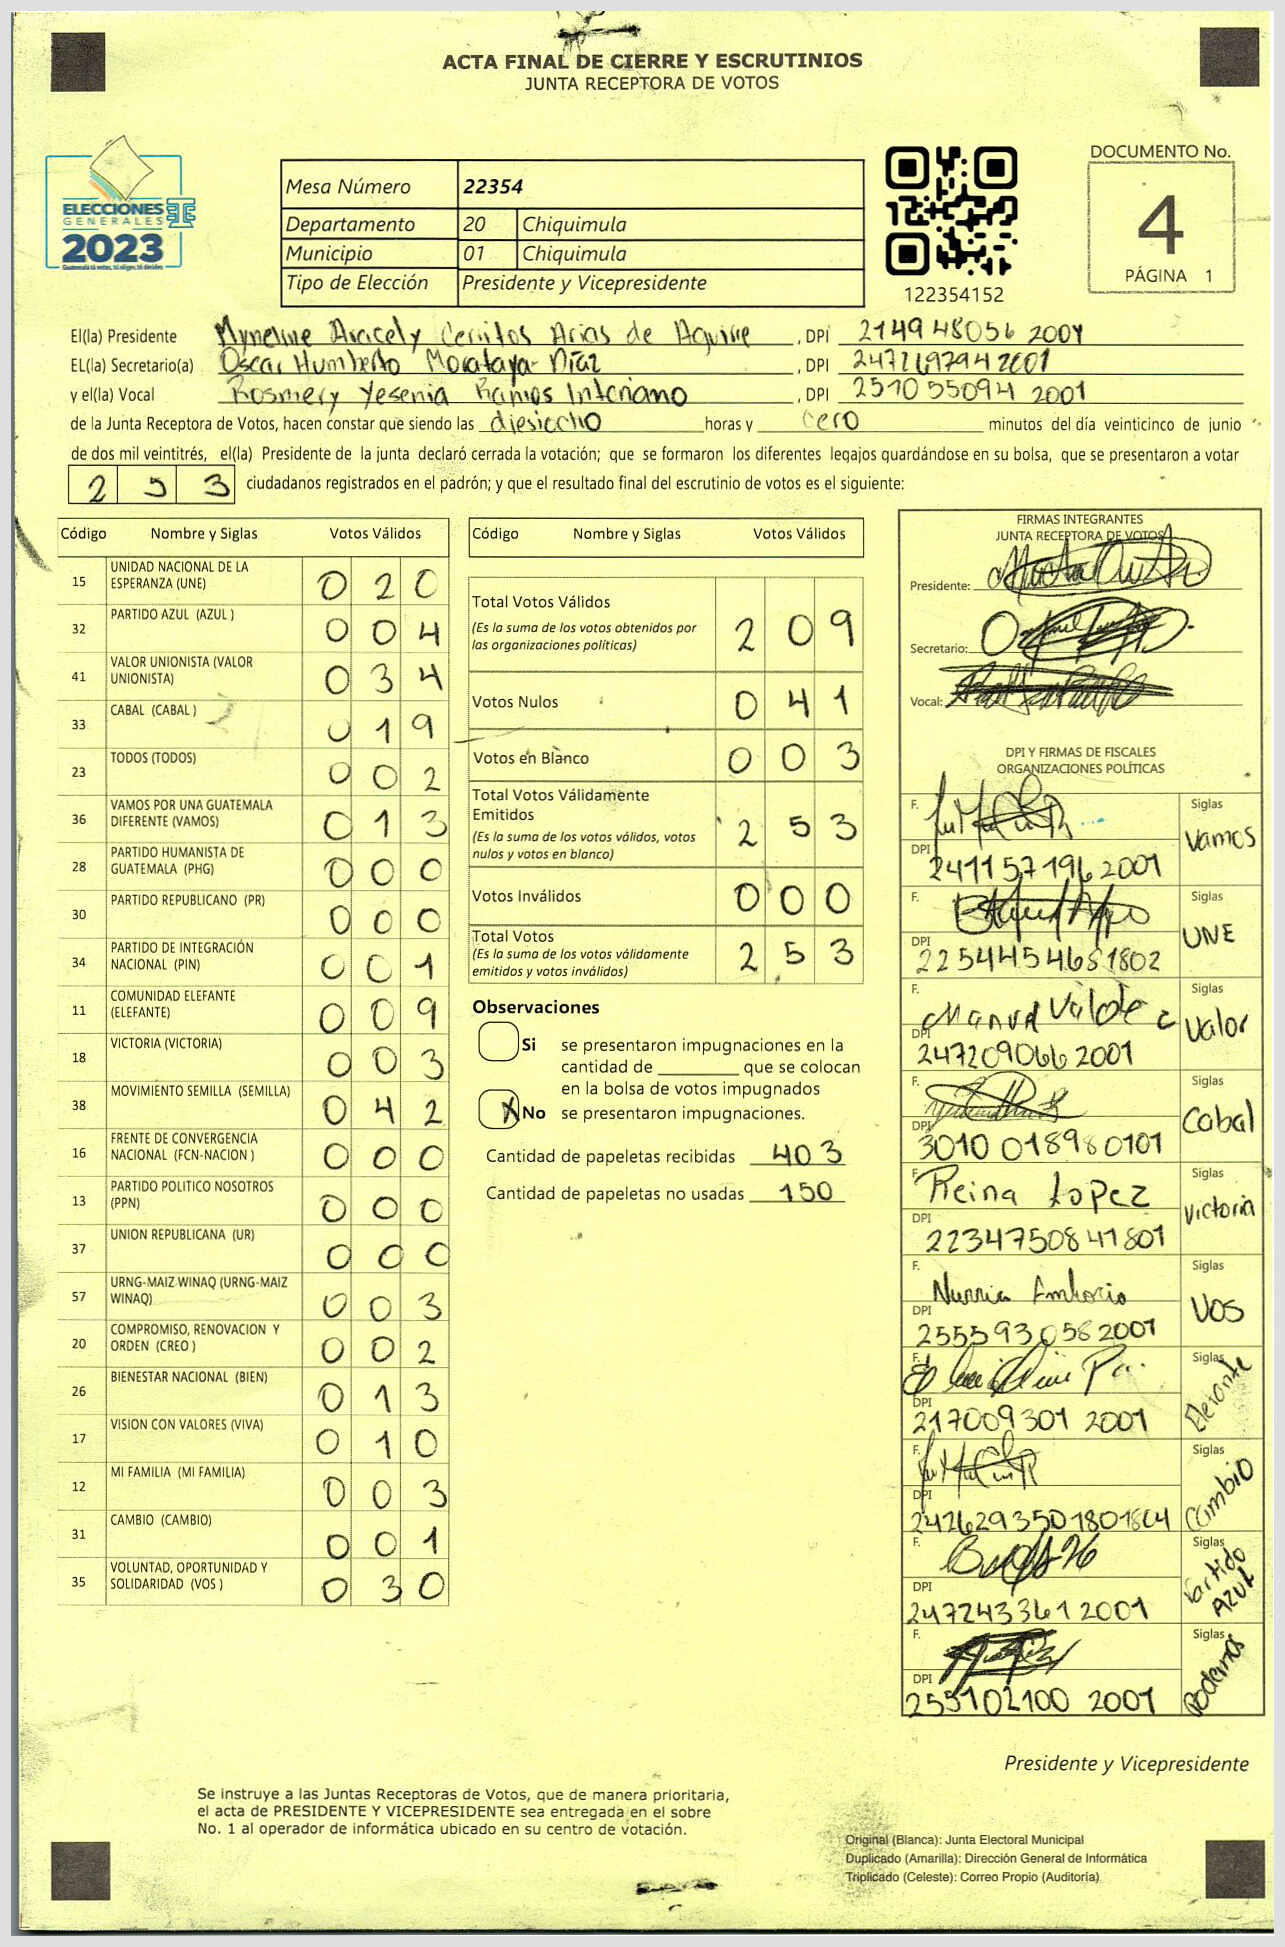 ACTA FINAL DE CIERRE Y ESCRUTINIOS
JUNTA RECEPTORA DE VOTOS
ELECCIONES
GENERALES
2023
Guatemala tú votas, tú eliges, tú decides
Mesa Número 22354
Departamento 20 Chiquimula
Municipio 01 Chiquimula
Tipo de Elección Presidente y Vicepresidente
122354152
DOCUMENTO No.
4
PÁGINA 1
El(la) Presidente Aracely Cerritos Arias de Aguirre, DPI 2149 48056 2001
EL(la) Secretario(a) Oscar Humberto Morataya Díaz, DPI 247269794 2001
y el(la) Vocal Rosmery Yesenia Ramos Interiano, DPI 2510 55094 2001
de la Junta Receptora de Votos, hacen constar que siendo las diesiocho horas y cero minutos del día veinticinco de junio
de dos mil veintitrés, el(la) Presidente de la junta declaró cerrada la votación; que se formaron los diferentes legajos guardándose en su bolsa, que se presentaron a votar
2 5 3 ciudadanos registrados en el padrón; y que el resultado final del escrutinio de votos es el siguiente:
Código Nombre y Siglas Votos Válidos
15 UNIDAD NACIONAL DE LA ESPERANZA (UNE) 0 2 0
32 PARTIDO AZUL (AZUL ) 0 0 4
41 VALOR UNIONISTA (VALOR UNIONISTA) 0 3 4
33 CABAL (CABAL ) 0 1 9
23 TODOS (TODOS) 0 0 2
36 VAMOS POR UNA GUATEMALA DIFERENTE (VAMOS) 0 1 3
28 PARTIDO HUMANISTA DE GUATEMALA (PHG) 0 0 0
30 PARTIDO REPUBLICANO (PR) 0 0 0
34 PARTIDO DE INTEGRACIÓN NACIONAL (PIN) 0 0 1
11 COMUNIDAD ELEFANTE (ELEFANTE) 0 0 9
18 VICTORIA (VICTORIA) 0 0 3
38 MOVIMIENTO SEMILLA (SEMILLA) 0 4 2
16 FRENTE DE CONVERGENCIA NACIONAL (FCN-NACION ) 0 0 0
13 PARTIDO POLITICO NOSOTROS (PPN) 0 0 0
37 UNION REPUBLICANA (UR) 0 0 0
57 URNG-MAIZ WINAQ (URNG-MAIZ WINAQ) 0 0 3
20 COMPROMISO, RENOVACION Y ORDEN (CREO ) 0 0 2
26 BIENESTAR NACIONAL (BIEN) 0 1 3
17 VISION CON VALORES (VIVA) 0 1 0
12 MI FAMILIA (MI FAMILIA) 0 0 3
31 CAMBIO (CAMBIO) 0 0 1
35 VOLUNTAD, OPORTUNIDAD Y SOLIDARIDAD (VOS ) 0 3 0
Código Nombre y Siglas Votos Válidos
Total Votos Válidos 2 0 9
(Es la suma de los votos obtenidos por
las organizaciones políticas)
Votos Nulos 0 4 1
Votos en Blanco 0 0 3
Total Votos Válidamente
Emitidos 2 5 3
(Es la suma de los votos válidos, votos
nulos y votos en blanco)
Votos Inválidos 0 0 0
Total Votos 2 5 3
(Es la suma de los votos válidamente
emitidos y votos inválidos)
Observaciones
Si se presentaron impugnaciones en la
cantidad de ________ que se colocan
en la bolsa de votos impugnados
X No se presentaron impugnaciones.
Cantidad de papeletas recibidas 403
Cantidad de papeletas no usadas 150
FIRMAS INTEGRANTES
JUNTA RECEPTORA DE VOTOS
Presidente:
Secretario:
Vocal:
DPI Y FIRMAS DE FISCALES
ORGANIZACIONES POLÍTICAS
F. Siglas Vamos
DPI 241157196 2001
F. Siglas UNE
DPI 2254454681802
F. Manuel Siglas Valor
DPI 247209066 2001
F. Siglas Cabal
DPI 3010 018980101
F. Reina Lopez Siglas Victoria
DPI 2234750841801
F. Siglas VOS
DPI 255593058 2001
F. Siglas Elefante
DPI 217009301 2001
F. Siglas Cambio
DPI
F. Siglas Partido AZUL
DPI 247243361 2001
F. Siglas Podemos
DPI 255102100 2001
Presidente y Vicepresidente
Se instruye a las Juntas Receptoras de Votos, que de manera prioritaria,
el acta de PRESIDENTE Y VICEPRESIDENTE sea entregada en el sobre
No. 1 al operador de informática ubicado en su centro de votación.
Original (Blanca): Junta Electoral Municipal
Duplicado (Amarilla): Dirección General de Informática
Triplicado (Celeste): Correo Propio (Auditoría)